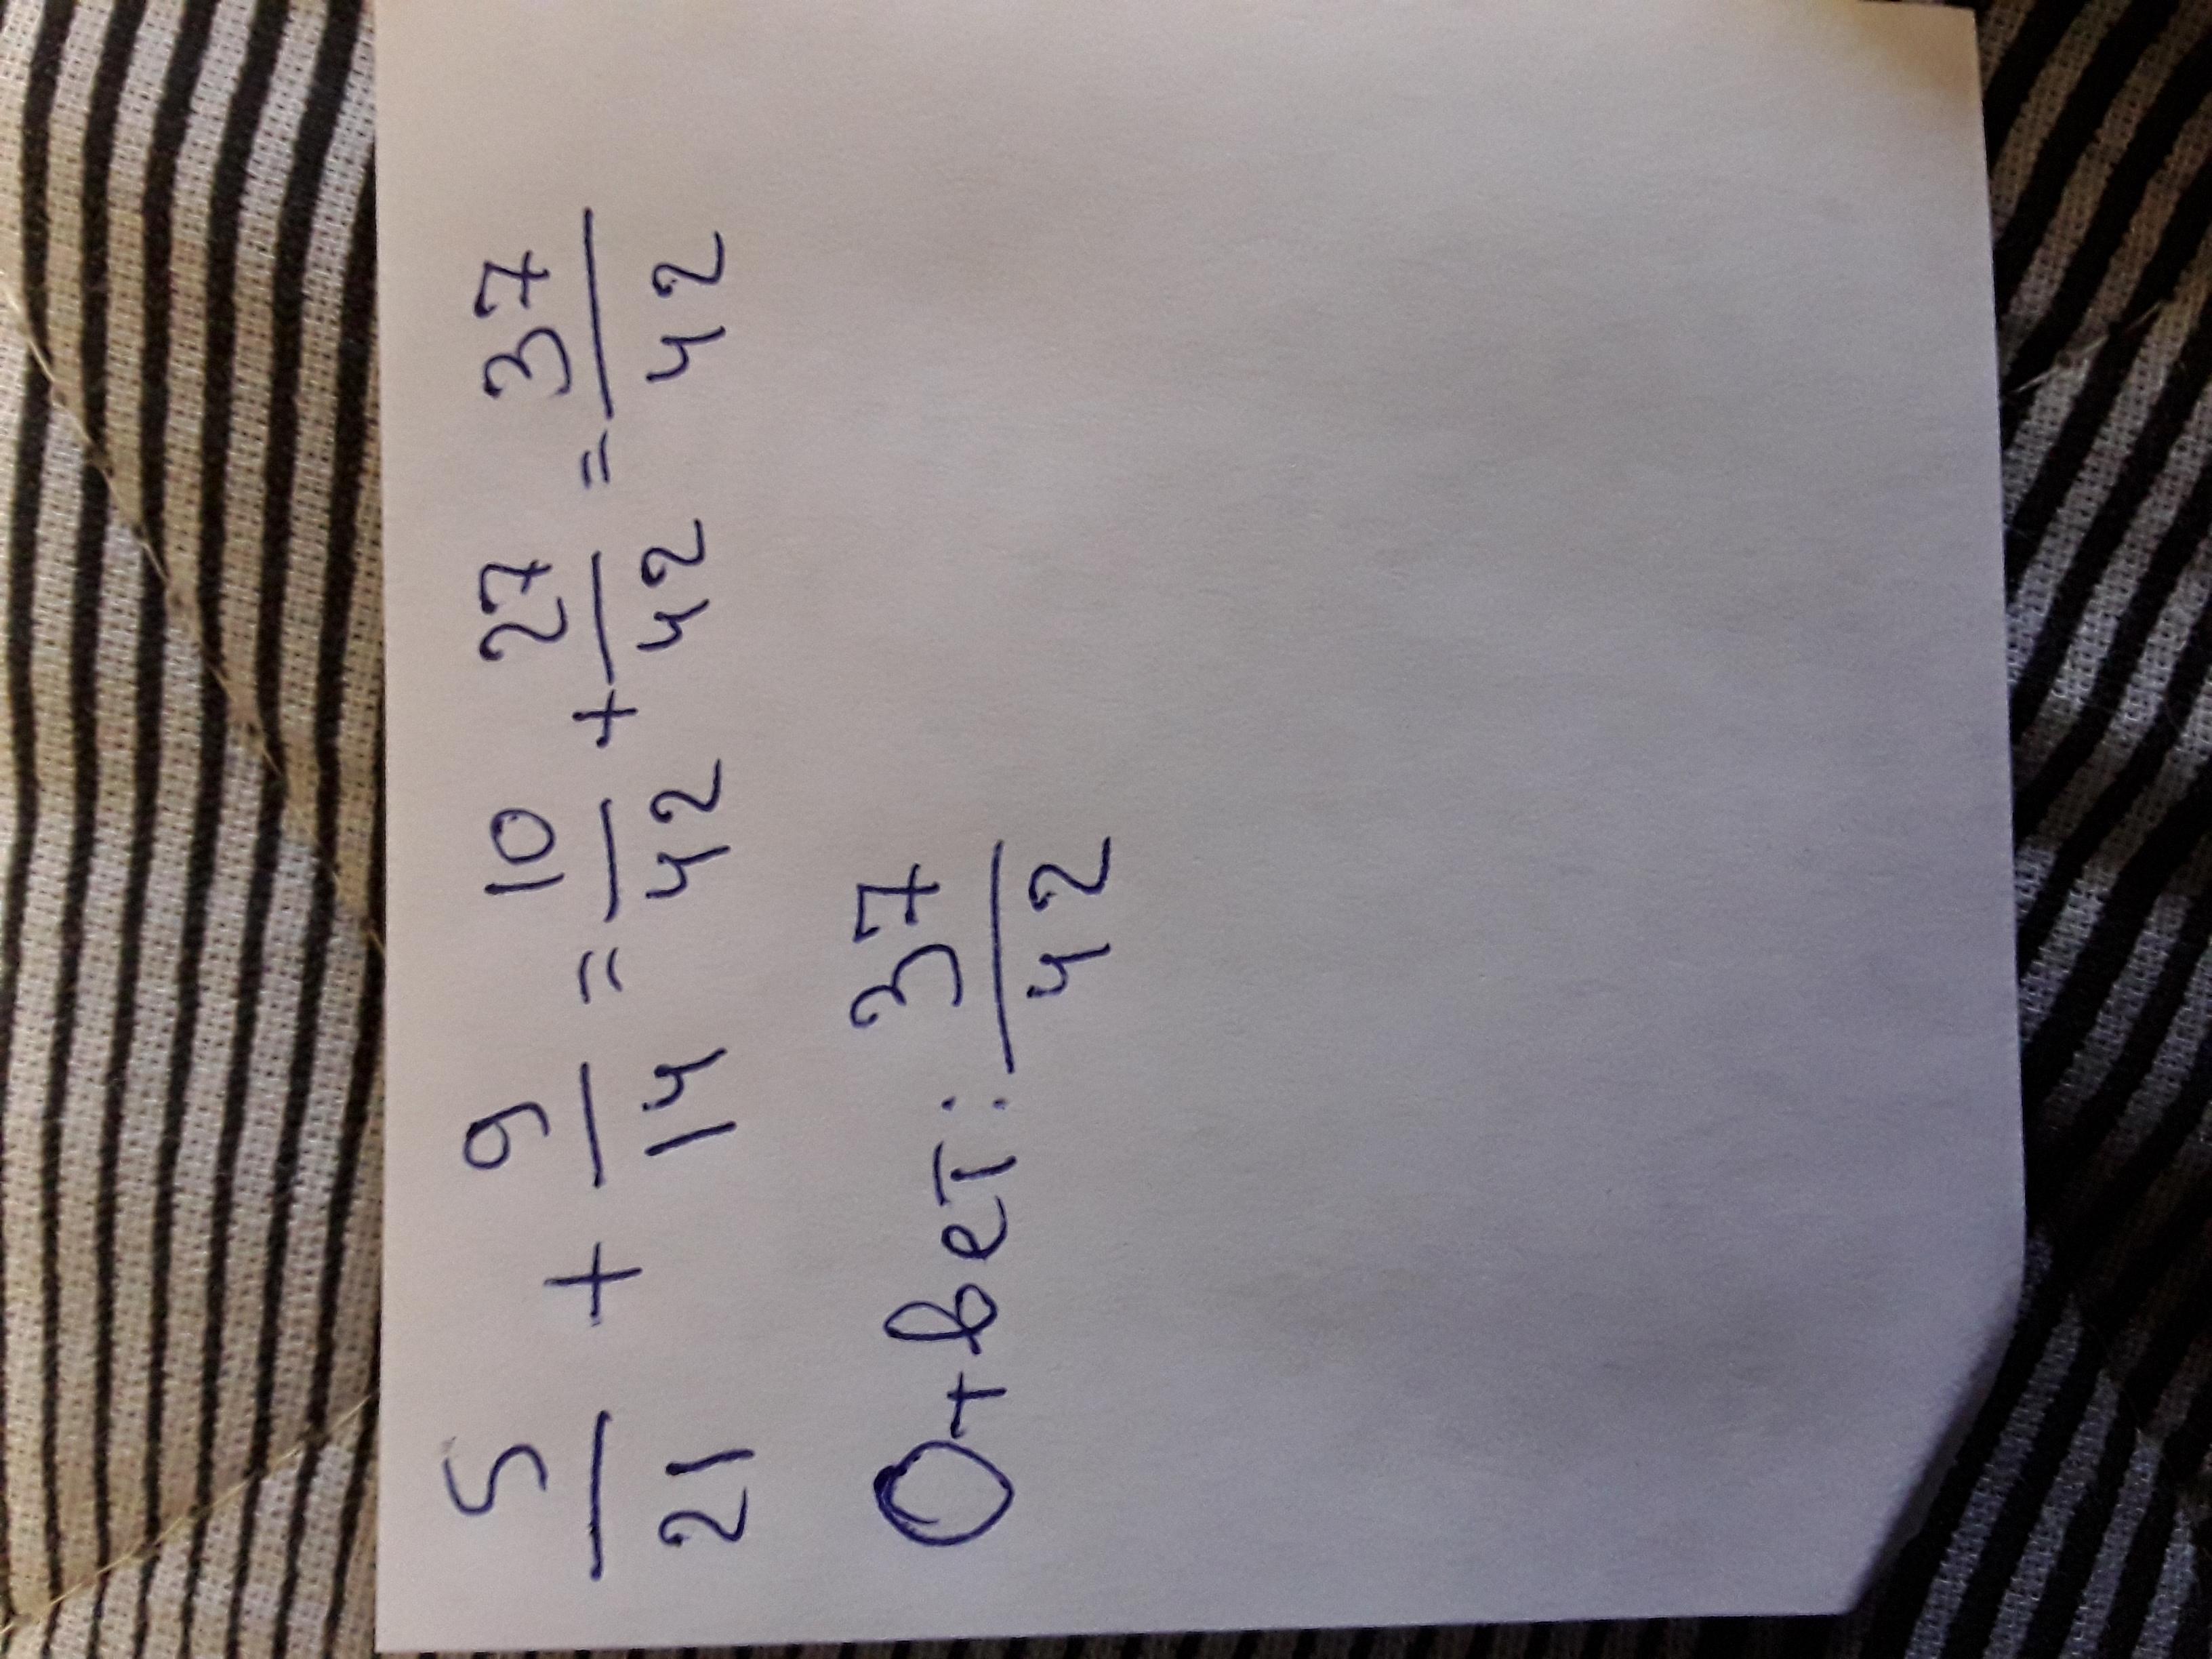 5/21 + 9/14 = 10/42 + 27/42 = 37/42
Ответ: 37/42